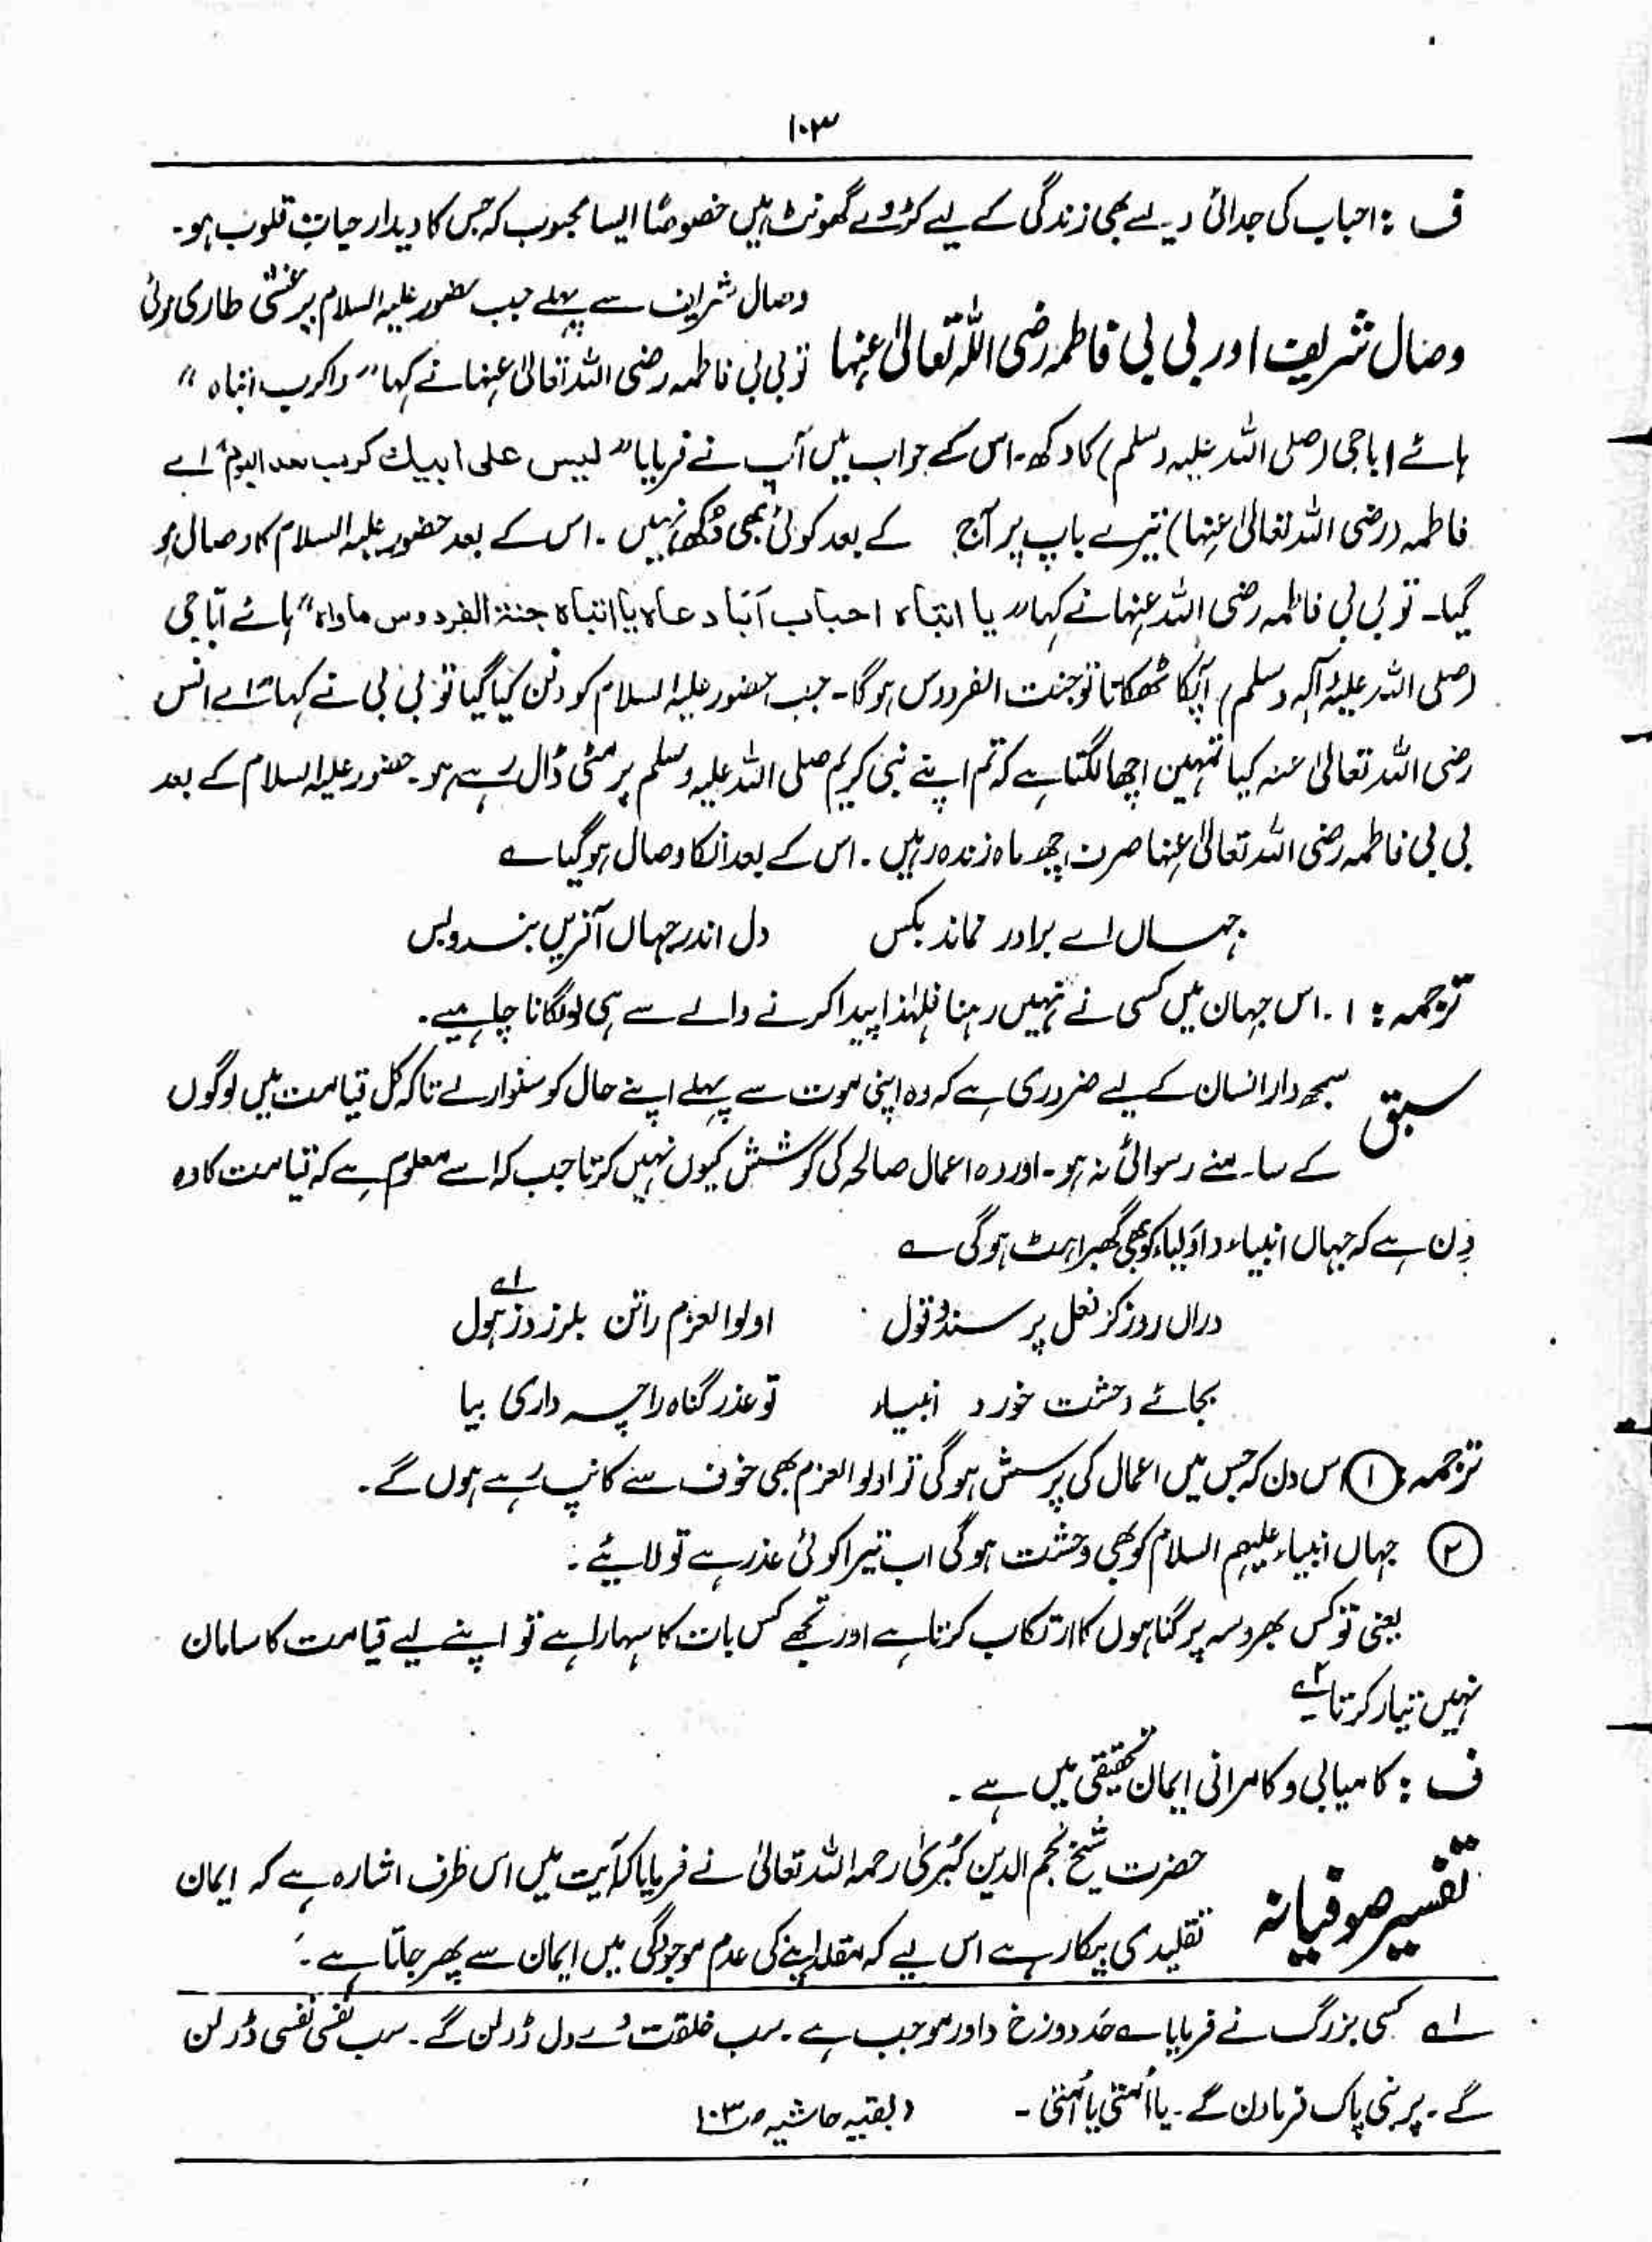 ۱۰۳
ف : احباب کی جدائی ویسے بھی زندگی کے لیے کڑوے گھونٹ ہیں خصوصًا ایسا محبوب کہ جس کا دیدار حیاتِ قلوب ہو۔
وصال شریف اور بی بی فاطمہ رضی اللہ تعالیٰ عنہا
وصال شریف سے پہلے جب حضور علیہ السلام پر غشی طاری ہوئی
تو بی بی فاطمہ رضی اللہ تعالیٰ عنہا نے کہا " واکرب ابتاہ "
ہائے ابا جی (صلی اللہ علیہ وسلم) کا دکھ۔ اس کے جواب میں آپ نے فرمایا " لیس علی ابیك کرب بعد الیوم " اے
فاطمہ (رضی اللہ تعالیٰ عنہا) تیرے باپ پر آج کے بعد کوئی بھی دُکھ نہیں ۔ اس کے بعد حضور علیہ السلام کا وصال ہو
گیا۔ تو بی بی فاطمہ رضی اللہ عنہا نے کہا " یا ابتاہ احباب آبًا دعاہ یا ابتاہ جنة الفردوس ماواہ " ہائے ابّا جی
(صلی اللہ علیہ وآلہ وسلم) آپکا ٹھکانا تو جنت الفردوس ہوگا۔ جب حضور علیہ السلام کو دفن کیا گیا تو بی بی نے کہا " اے انس
رضی اللہ تعالیٰ عنہ کیا تمہیں اچھا لگتا ہے کہ تم اپنے نبی کریم صلی اللہ علیہ وسلم پر مٹی ڈال رہے ہو۔ حضور علیہ السلام کے بعد
بی بی فاطمہ رضی اللہ تعالیٰ عنہا صرف چھ ماہ زندہ رہیں ۔ اس کے بعد انکا وصال ہوگیا ؎
جہاں اے برادر نماند بکس دل اندر جہاں آفریں بند و بس
ترجمہ : ۱۔ اس جہان میں کسی نے نہیں رہنا فلہٰذا پیدا کرنے والے سے ہی لو لگانا چاہیے۔
سبق سمجھدار انسان کے لیے ضروری ہے کہ وہ اپنی موت سے پہلے اپنے حال کو سنوارلے تاکہ کل قیامت میں لوگوں
کے سامنے رسوائی نہ ہو۔ اور وہ اعمال صالحہ کی کوشش کیوں نہیں کرتا جب کہ اسے معلوم ہے کہ قیامت کا وہ
دِن ہے کہ جہاں انبیاء و اولیاء کو بھی گھبراہٹ ہوگی ؎
دراں روز کز فعل پرسند و قول اولوالعزم را تن بلرزد ز ہول ۱ے
بجائے دہشت خورد انبیاء تو عذر گناہ را چہ داری بیا
ترجمہ : ① اس دن کہ جس میں اعمال کی پرسش ہوگی تو اولوالعزم بھی خوف سے کانپ رہے ہوں گے۔
② جہاں انبیاء علیہم السلام کو بھی وحشت ہوگی اب تیرا کوئی عذر ہے تو لایئے :
یعنی تو کس بھروسہ پر گناہوں کا ارتکاب کرتا ہے اور تجھے کس بات کا سہارا ہے تو اپنے لیے قیامت کا سامان
نہیں تیار کرتا ۲ے
ف : کامیابی و کامرانی ایمان تحقیقی میں ہے ۔
تفسیر صوفیانہ حضرت شیخ نجم الدین کُبریٰ رحمہ اللہ تعالیٰ نے فرمایا کہ آیت میں اس طرف اشارہ ہے کہ ایمان
تقلیدی بیکار ہے اس لیے کہ مقلد اپنے کی عدم موجودگی میں ایمان سے پھر جاتا ہے :
۱ے کسی بزرگ نے فرمایا ؎ حد دوزخ داور موجب ہے ۔ سب خلقت دے دل ڈرلن گے ۔ سب نفسی نفسی ڈرلن
گے ۔ پر نبی پاک فرماون گے ۔ یا اُمتی یا اُمتی ۔ (بقیہ حاشیہ ص ۱۰۳